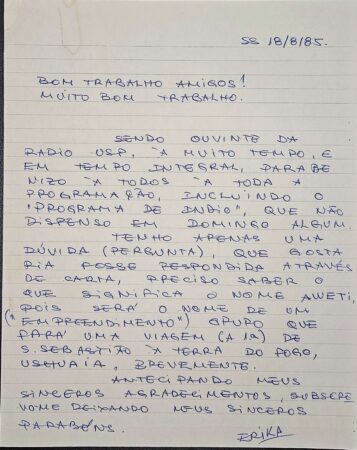 SS 18/8/85.
BOM TRABALHO AMIGOS!
MUITO BOM TRABALHO.
SENDO OUVINTE DA
RADIO USP, À MUITO TEMPO, E
EM TEMPO INTEGRAL, PARABE
NIZO À TODOS À TODA A
PROGRAMAÇÃO, INCLUINDO O
"PROGRAMA DE INDIO", QUE NÃO
DISPENSO EM DOMINGO ALGUM.
TENHO APENAS UMA
DÚVIDA (PERGUNTA), QUE GOSTA
RIA FOSSE RESPONDIDA ATRAVÉS
DE CARTA, PRECISO SABER O
QUE SIGNIFICA O NOME AWETI,
POIS SERÁ O NOME DE UM
("EMPREENDIMENTO") GRUPO QUE
FARÁ UMA VIAGEM (A 1ª) DE
S. SEBASTIÃO À TERRA DO FOGO,
USHUAIA, BREVEMENTE.
ANTECIPANDO MEUS
SINCEROS AGRADECIMENTOS, SUBSCRE
VO-ME DEIXANDO MEUS SINCEROS
PARABÉNS.
ERIKA